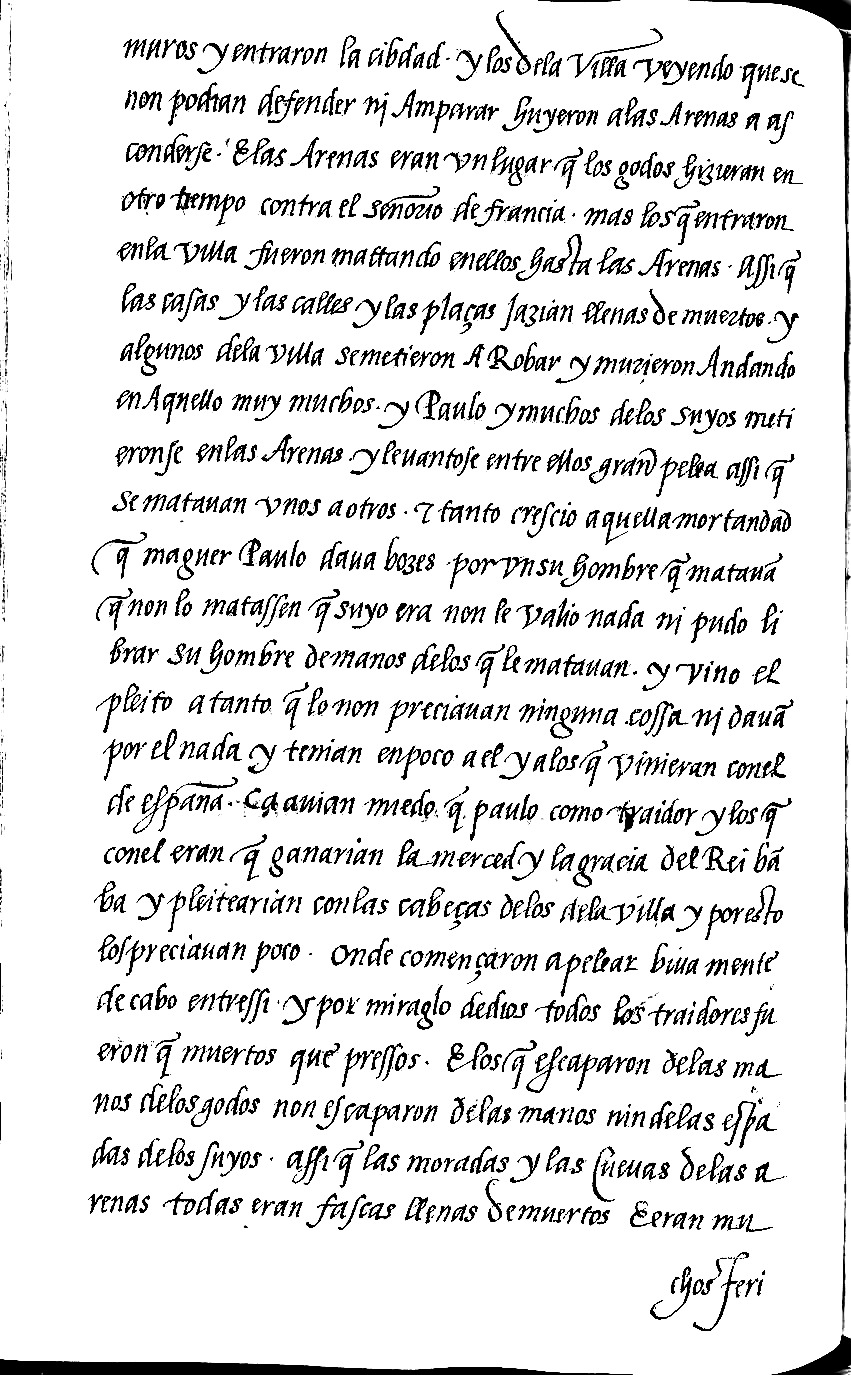 muros y entraron la cibdad. y los dela Villa veyendo que se
non podian defender nj Amparar huyeron alas Arenas a as
conderse. E las Arenas eran vn lugar q̃ los godos hizieran en
otro tiempo contra el señorio de francia. mas los q̃ entraron
enla villa fueron mattando enellos hasta las Arenas. Assi q̃
las casas y las calles y las plaças Jazian llenas de muertos. y
algunos dela villa semetieron A Robar y murieron Andando
en Aquello muy muchos. y Paulo y muchos delos suyos meti
eronse enlas Arenas. y leuantose entre ellos gran pelea assi q̃
se matauan vnos a otros. & tanto crescio aquella mortandad
q̃ maguer Paulo daua bozes por vn su hombre q̃ matauã
q̃ non lo matassen q̃ suyo era non le valio nada nj pudo li
brar su hombre demanos delos q̃ le matauan. y vino el
pleito a tanto q̃ lo non preciauan ninguna cossa nj dauã
por el nada y tenian enpoco a el y alos q̃ vinieran conel
de españa. Ca auian miedo q̃ paulo como traidor y los q̃
conel eran q̃ ganarian la merced y la gracia del Rei bã
ba y pleitearian conlas cabeças delos dela villa y por esto
los preciauan poco. Onde començaron a pelear biua mente
de cabo entressi. y por miraglo dedios todos los traidores fu
eron q̃ muertos que pressos. E los q̃ escaparon delas ma
nos delos godos non escaparon delas manos nin delas espa
das delos suyos. assi q̃ las moradas y las cueuas delas a
renas todas eran fascas llenas de muertos E eran mu
chos feri